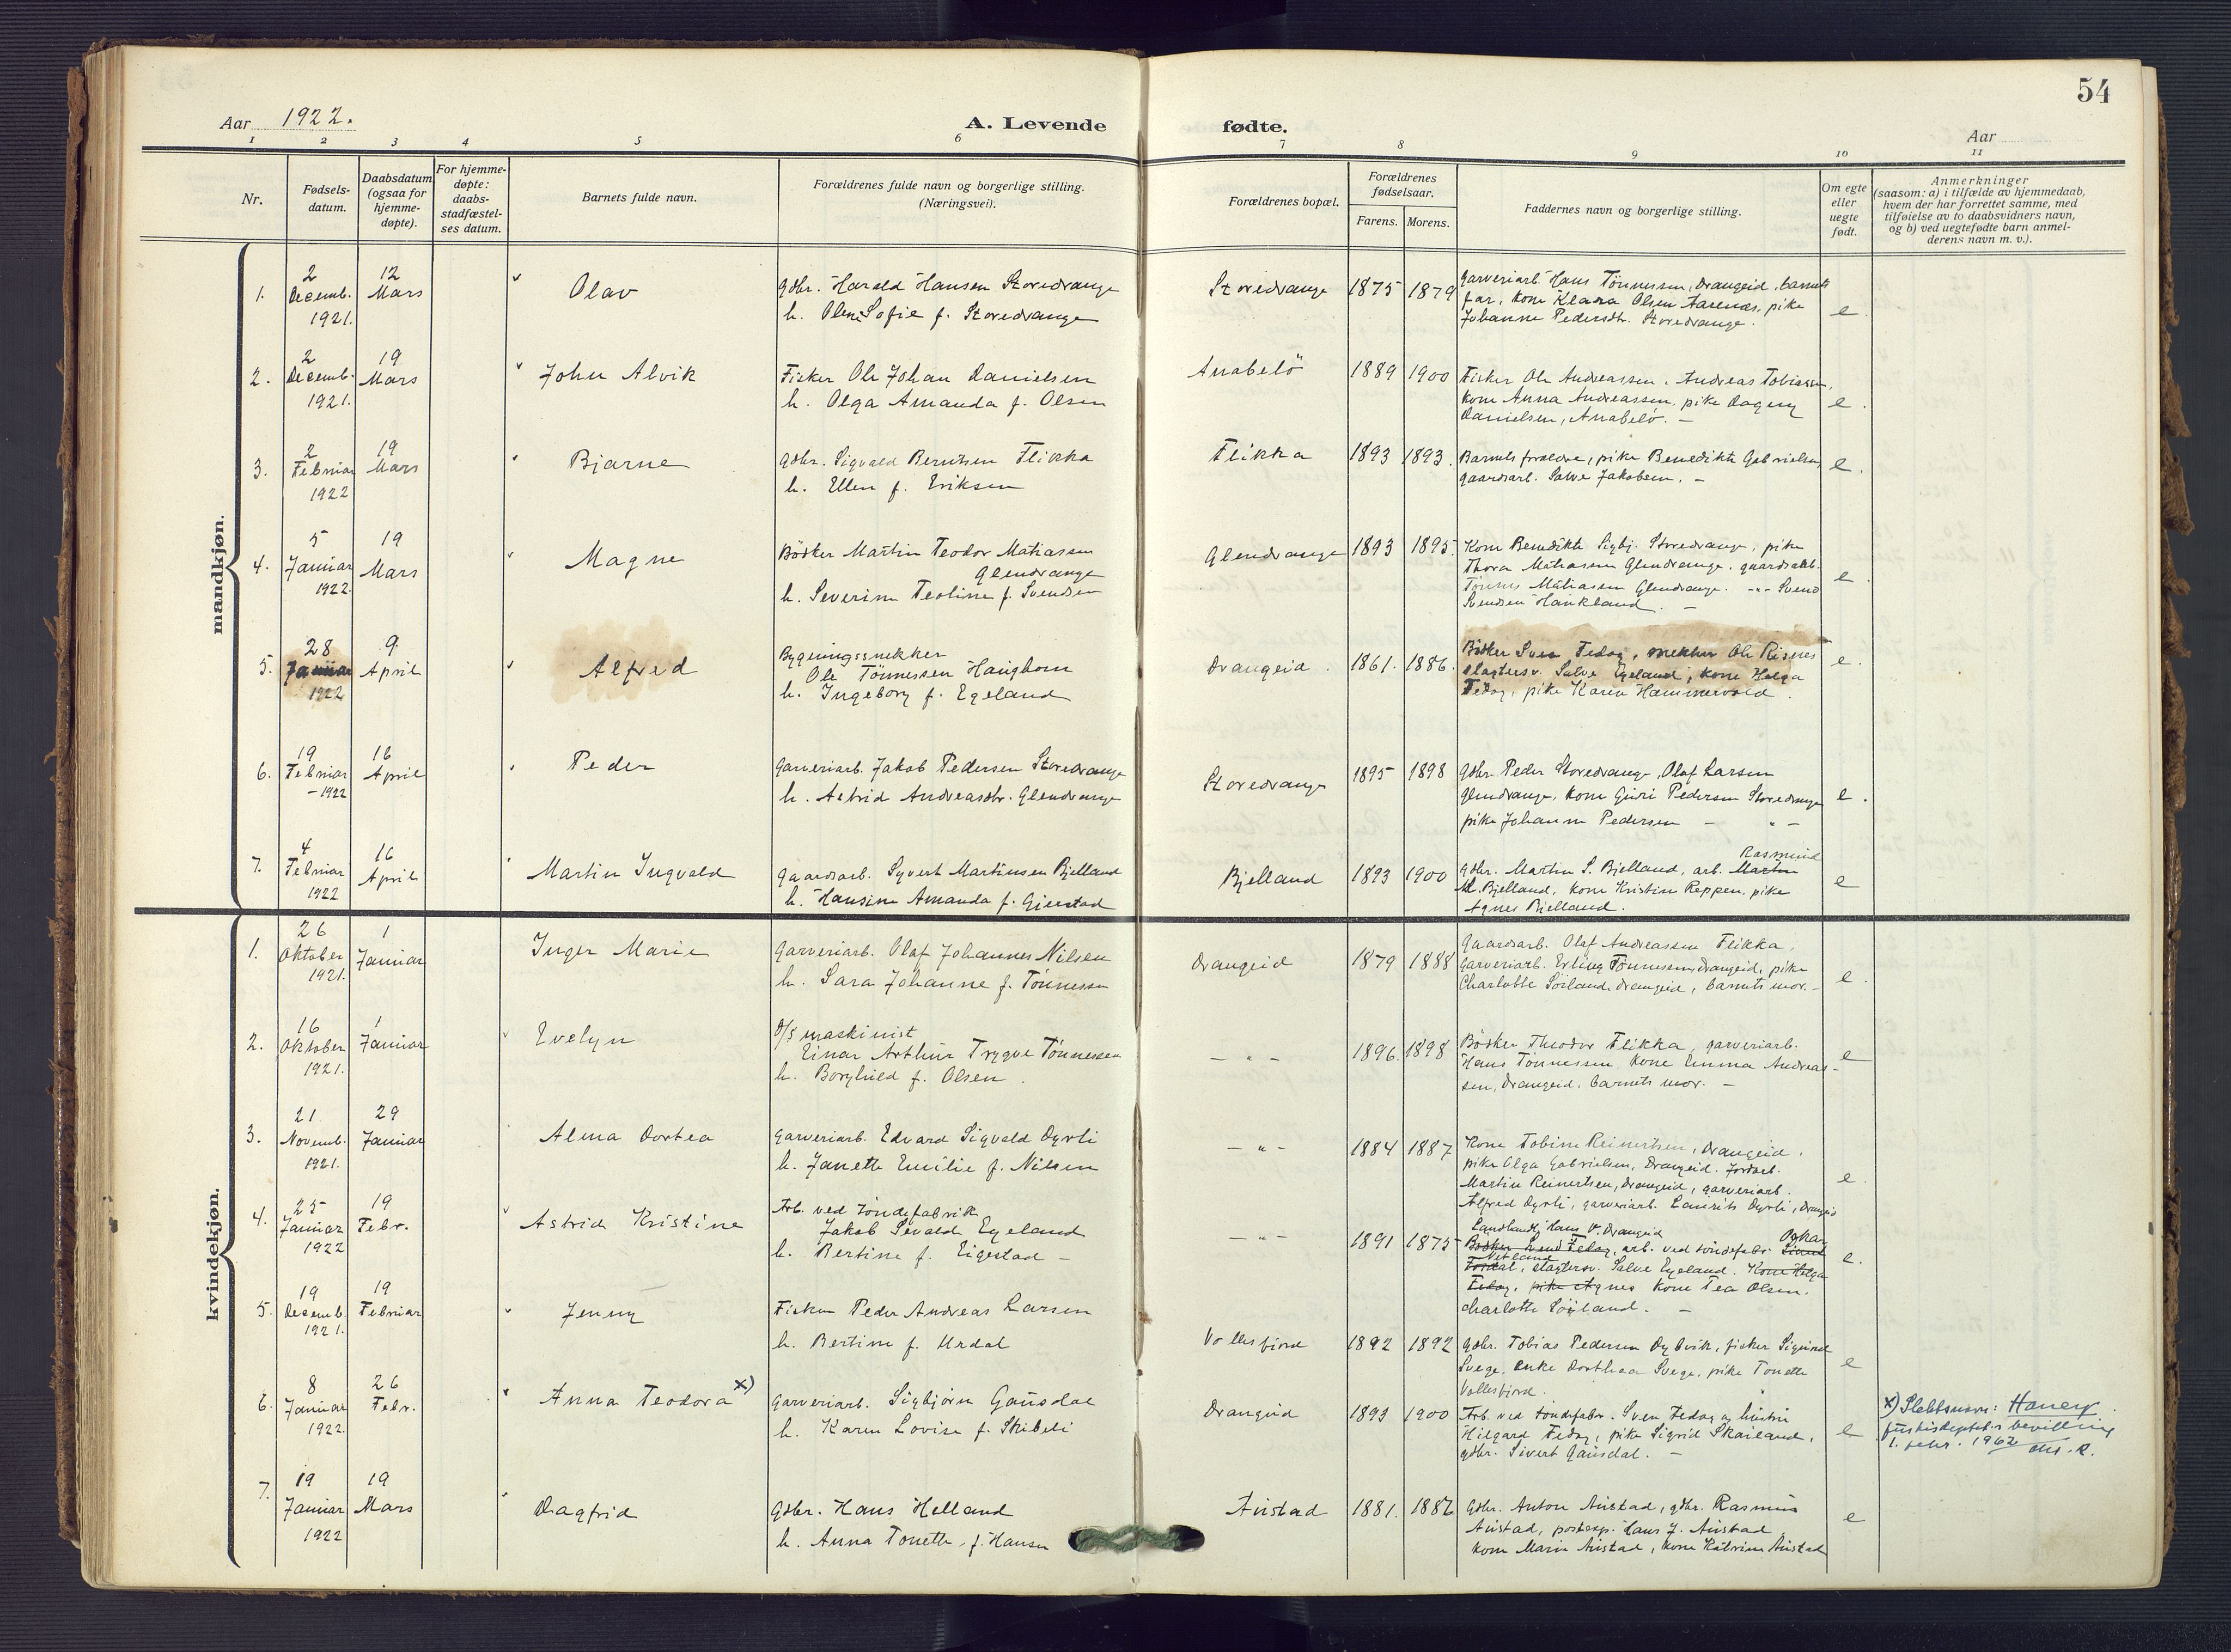 54
Aar 1922.
A. Levende fødte.
Aar
1 2 3 4 5 6 7 8 9 10 11
Nr.
Fødsels-
datum.
Daabsdatum
(ogsaa for
hjemme-
døpte).
For hjemme-
døpte:
daabs-
stadfæstel-
ses datum.
Barnets fulde navn.
Forældrenes fulde navn og borgerlige stilling.
(Næringsvei).
Forældrenes bopæl.
Forældrenes
fødselsaar.
Farens. Morens.
Faddernes navn og borgerlige stilling.
Om egte
eller
uegte
født.
Anmerkninger
(saasom: a) i tilfælde av hjemmedaab,
hvem der har forrettet samme, med
tilføielse av to daabsvidners navn,
og b) ved uegtefødte barn anmel-
derens navn m. v.).
mandkjøn.
1.
2
Decemb.
1921.
12
Mars
Olav
Gdbr. Harald Hansen Storedrange
h. Oline Sofie f. Storedrange
Storedrange
1875 1879
Garveriarb. Hans Tönnessen, Drangeid, barnets
far, kone Klara Olsen Aarenæs, pike
Johanne Pedersdtr. Storedrange.
e.
2.
2
Decemb.
1921.
19
Mars
John Alvik
Fisker Ole Johan Danielsen
h. Olga Amanda f. Olsen
Anabelö
1889 1900
Fisker Ole Andreassen, Andreas Tobiassen,
kone Anna Andreassen, pike Dagny
Danielsen, Anabelö. –
e.
3.
2
Februar
1922
19
Mars
Bjarne
Gdbr. Sigvald Berntsen Flikka
h. Ellen f. Eriksen
Flikka
1893 1893.
Barnets forældre, pike Benedikte Gabrielsen,
gaardsarb. Salve Jakobsen. –
e.
4.
5
Januar
1922.
19
Mars
Magne
Bödker Martin Teodor Matiassen
Glendrange
h. Severine Teoline f. Svendsen
Glendrange
1893 1895.
Kone Benedikte Sigbj. Storedrange, pike
Thora Matiassen Glendrange, gaardsarb.
Tönnes Matiasen Glendrange. -"- Svend
Svendsen Haukland. –
e.
5.
28
Januar
1922
9
April
Alfred
Bygningssnekker
Ole Tönnessen Haughom
h. Ingeborg f. Egeland
Drangeid.
1861. 1886.
Bödker Sven Fedog, snekker Ole Risnes
slagtersv. Salve Egeland, kone Helga
Fedog, pike Karen Hammervold.
e.
6.
19
Februar
-1922
16
April
Peder
Garveriarb. Jakob Pedersen Storedrange
h. Astrid Andreasdtr. Glendrange
Storedrange
1895 1898
Gdbr. Peder Storedrange, Olaf Larsen
Glendrange, kone Guri Pedersen Storedrange
pike Johanne Pedersen – " –
e.
7.
4
Februar
1922
16
April
Martin Ingvald
Gaardsarb. Syvert Martinsen Bjelland
h. Hansine Amanda f. Gjerstad
Bjelland
1893 1900
Rasmund
Gdbr. Martin S. Bjelland, arb. Martin
M. Bjelland, kone Kristine Reppen, pike
Agnes Bjelland.
e
kvindekjøn.
1.
26
Oktober
1921.
1
Januar
Inger Marie
Garveriarb. Olaf Johannes Nilsen
h. Sara Johanne f. Tönnessen
Drangeid
1879 1888
Gaardsarb. Olaf Andreassen Flikka,
Garveriarb. Erling Tönnessen, Drangeid, pike
Charlotte Sörland, Drangeid, barnets mor. –
e.
2.
16
Oktober
1921.
1
Januar
Evelyn
D/s maskinist
Einar Arthur Trygve Tönnessen
h. Borghild f. Olsen.
– " –
1896. 1898
Bödker Theodor Flikka, garveriarb.
Hans Tönnessen, kone Emma Andreas-
sen, Drangeid, barnets mor. –
e
3.
21
Novemb.
1921.
29
Januar
Alma Dortea
Garveriarb. Edvard Sigvald Dyrli
h. Janette Emilie f. Nilsen
– " –
1884 1887
Kone Tobine Reinertsen, Drangeid,
pike Olga Gabrielsen, Drangeid. Jordarb.
Martin Reinertsen, Drangeid, garveriarb.
Alfred Dyrli, garveriarb. Laurits Dyrli, Drangeid
e
4.
25
Januar
1922
19
Febr.
Astrid Kristine
Arb. ved töndefabrik
Jakob Sevald Egeland
h. Bertine f. Eigestad –
– " –
1891 1875
Landhandl. Hans V. Drangeid Oskar
Bödker Svend Fedog, arb. ved töndefabr.
Netland
slagtersv. Salve Egeland. Kone Helga
Fedog, pike Agnes kone Tea Olsen.
Charlotte Söyland. –
e.
5.
19
Decemb.
1921.
19
Februar
Jenny
Fisker Peder Andreas Larsen
h. Bertine f. Urdal
Vollesfjord
1892 1892
Gdbr. Tobias Pedersen Dybvik, fisker Sigvind
Svege, enke Dorthea Svege, pike Tonette
Vollesfjord.
e
6.
8
Januar
1922.
26
Febr.
Anna Teodora x)
Garveriarb. Sigbjörn Gausdal
h. Karen Lovise f. Skibeli
Drangeid
1893 1900
Arb. ved töndefabr. Sven Fedog og hustru
Hilgard Fedog, pike Sigrid Skailand,
gdbr. Sivert Gausdal. –
e
x) Slektsnavn: Haney.
justisdeptets bevilling
1. febr. 1962
7.
19
Januar
1922
19
Mars
Dagfrid
Gdbr. Hans Helland
h. Anna Tonette, f. Hansen
Austad
1881. 1886
Gdbr. Anton Austad, gdbr. Rasmus
Austad, postexp. Hans J. Austad
kone Marie Austad, kone Katrine Austad
e